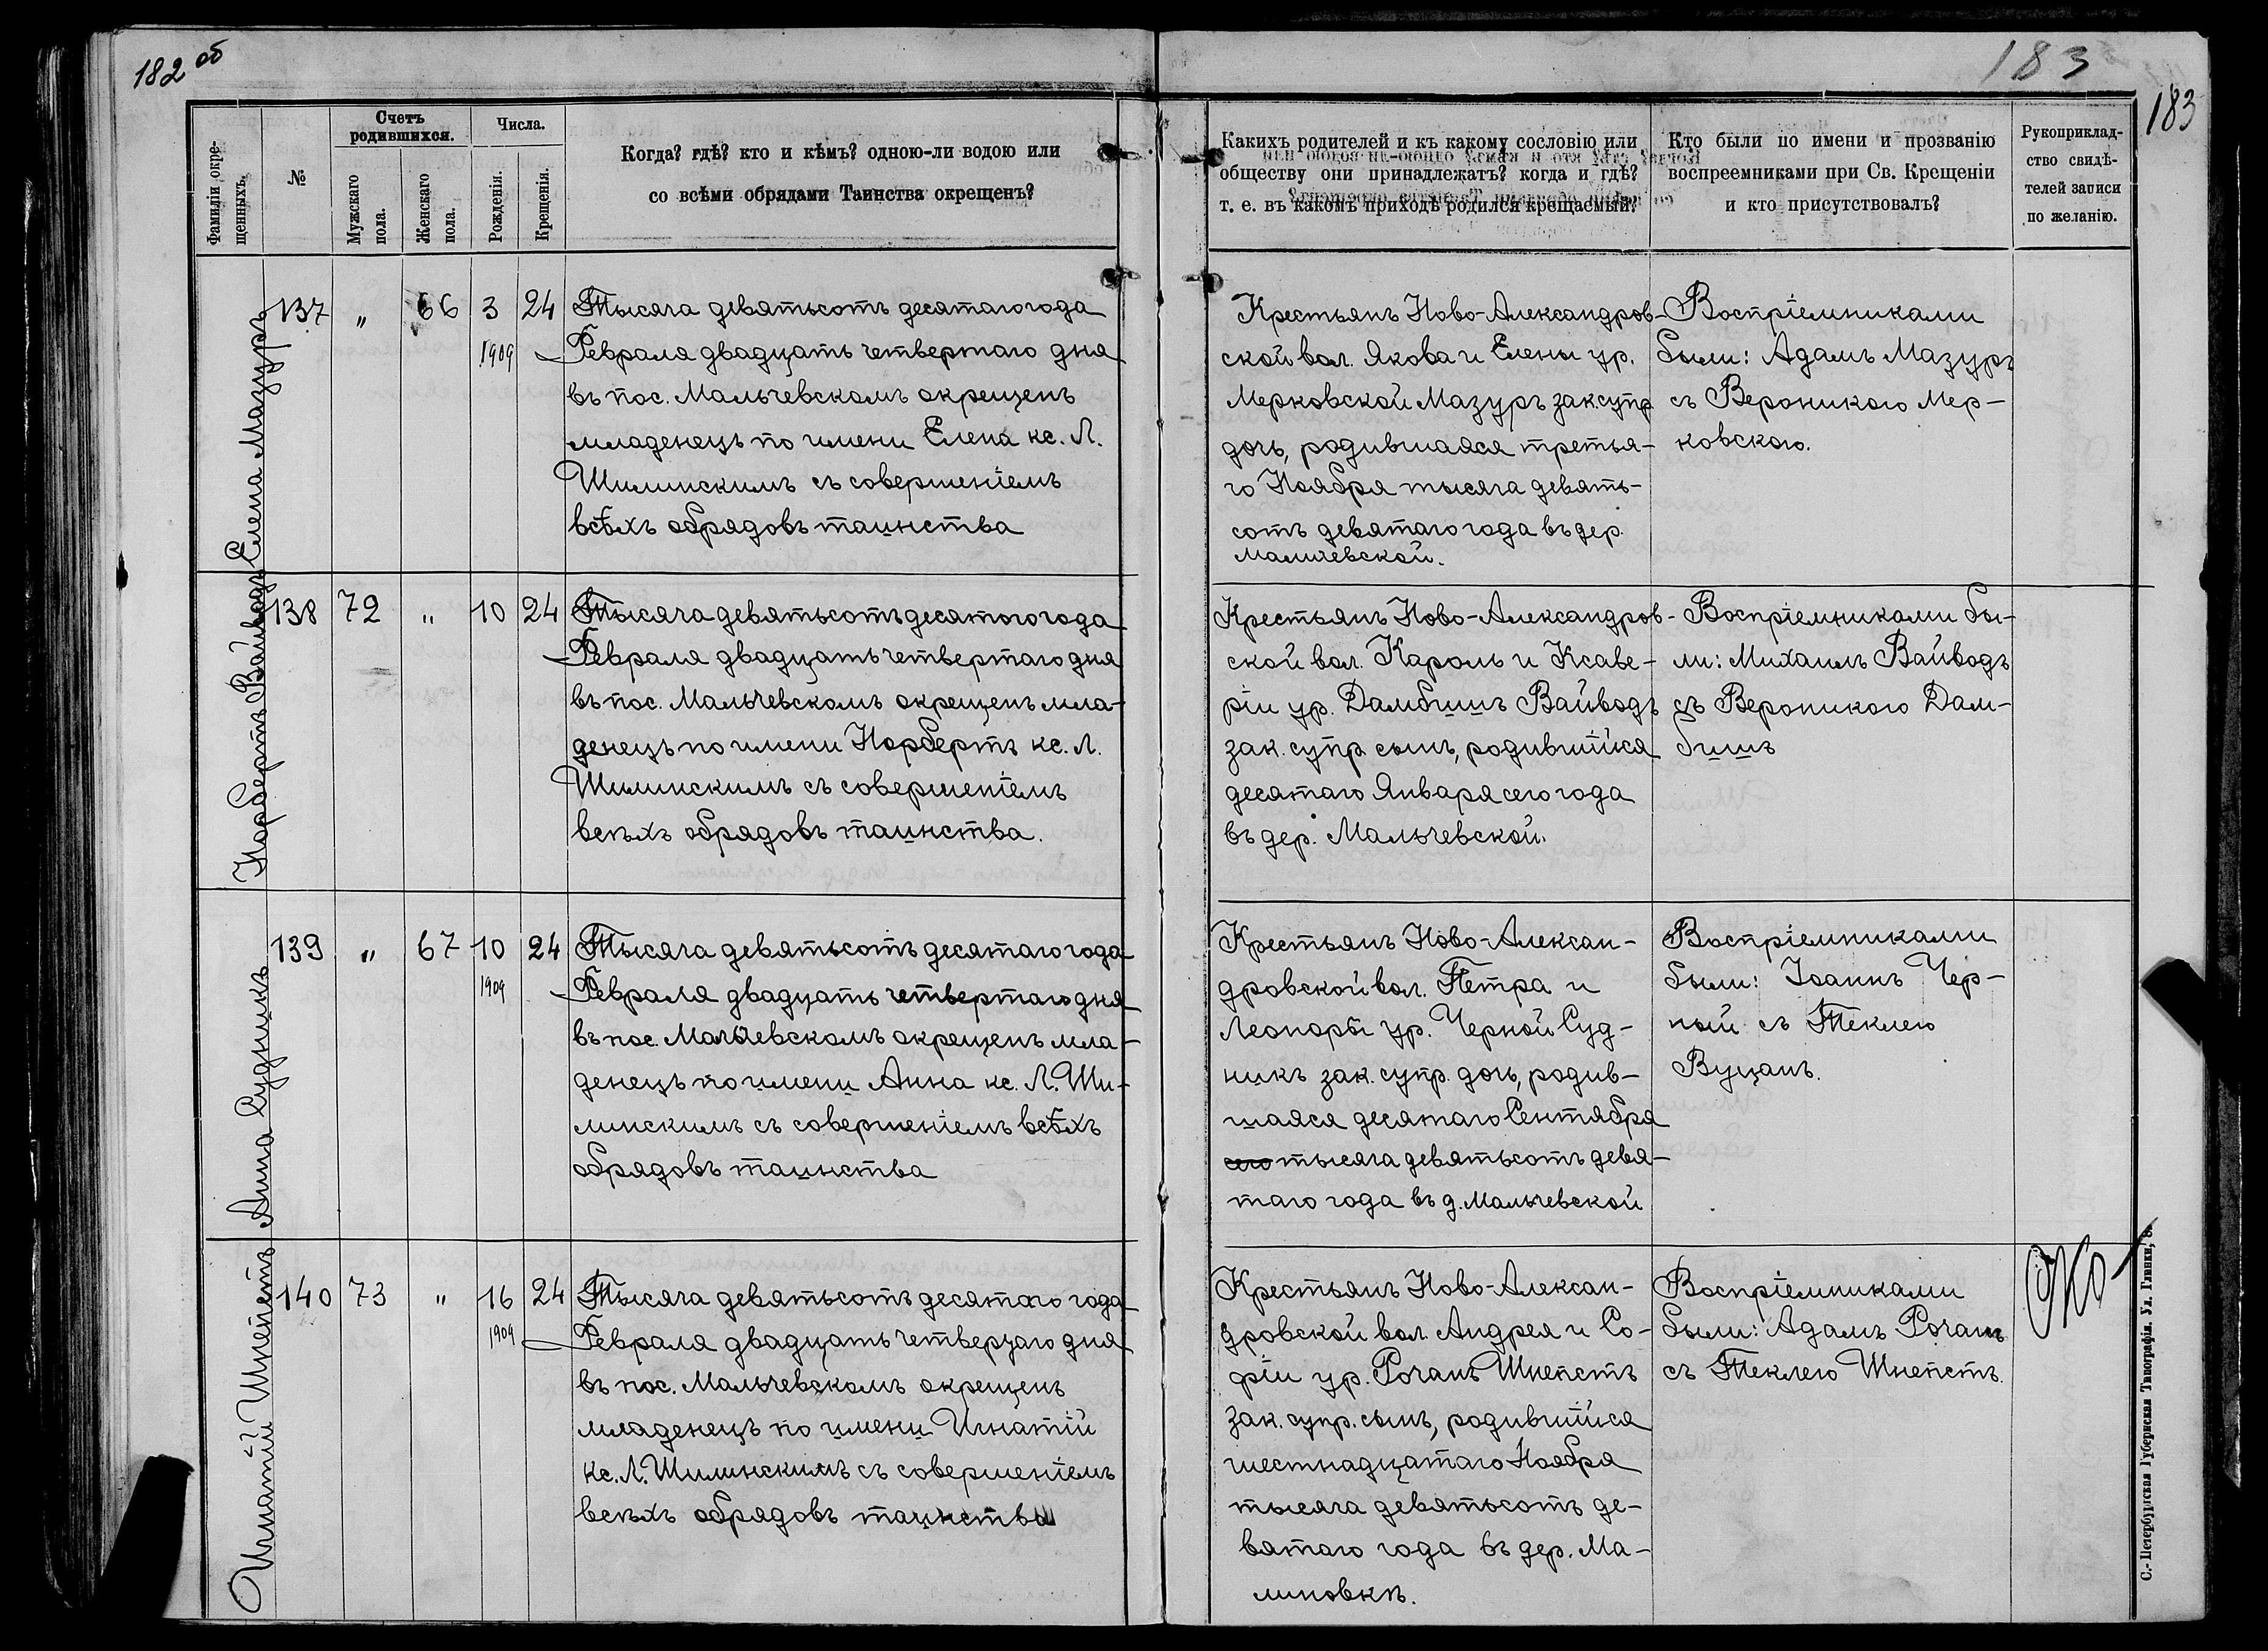 182 об
183
183
Фамиліи окре-
щенныхъ.
№
Счетъ
родившихся.
Мужскаго
пола.
Женскаго
пола.
Числа.
Рожденія.
Крещенія.
Когда? гдѣ? кто и кѣмъ? одною-ли водою или
со всѣми обрядами Таинства окрещенъ?
Какихъ родителей и къ какому сословію или
обществу они принадлежатъ? когда и гдѣ?
т. е. въ какомъ приходѣ родился крещаемый?
Кто были по имени и прозванію
воспреемниками при Св. Крещеніи
и кто присутствовалъ?
Рукоприклад-
ство свидѣ-
телей записи
по желанію.
Елена Мазуръ
137 „ 66 3 24
1909
Тысяча девятьсотъ десятаго года
Февраля двадцать четвертаго дня
въ пос. Мальчевскомъ окрещенъ
младенецъ по имени Елена кс. Л.
Шилинскимъ съ совершеніемъ
всѣхъ обрядовъ таинства
Крестьянъ Ново-Александров-
ской вол. Якова и Елены ур.
Мерковской Мазуръ зак. супр
дочь, родившаяся третья-
го Ноября тысяча девять-
сотъ девятаго года въ дер.
Мальчевской.
Воспріемниками
были: Адамъ Мазуръ
съ Вероникою Мер-
ковскою.
Норбертъ Вайводъ
138 72 „ 10 24
Тысяча девятьсотъ десятого года
Февраля двадцать четвертаго дня
въ пос. Мальчевскомъ окрещенъ мла-
денецъ по имени Норбертъ кс. Л.
Шилинскимъ съ совершеніемъ
всѣхъ обрядовъ таинства.
Крестьянъ Ново-Александров-
ской вол. Кароль и Ксаве-
ріи ур. Дамбишъ Вайводъ
зак. супр сынъ, родившійся
десятаго Января сего года
въ дер. Мальчевской.
Воспріемниками бы-
ли: Михаилъ Вайводъ
съ Вероникою Дам-
бишъ
Анна Судникъ
139 „ 67 10 24
1909
Тысяча девятьсотъ десятаго года
Февраля двадцать четвертаго дня
въ пос. Мальчевскомъ окрещенъ мла-
денецъ по имени Анна кс. Л. Ши-
линскимъ съ совершеніемъ всѣхъ
обрядовъ таинства
Крестьянъ Ново-Алексан-
дровской вол. Петра и
Леоноры ур. Черной Суд-
никъ зак. супр. дочь, родив-
шаяся десятаго Сентября
сего тысяча девятьсотъ девя-
таго года въ д. Мальчевской
Воспріемниками
были: Іоаннъ Чер-
ный съ Теклею
Вуцанъ.
Игнатій Шнепстъ
140 73 „ 16 24
1909
Тысяча девятьсотъ десятаго года
Февраля двадцать четверцаго дня
въ пос. Мальчевскомъ окрещенъ
младенецъ по имени Игнатій
кс. Л. Шилинскимъ съ совершеніемъ
всѣхъ обрядовъ таинства
Крестьянъ Ново-Алексан-
дровской вол. Андрея и Со-
фіи ур. Рочанъ Шнепстъ
зак. супр. сынъ, родившійся
шестнадцатаго Ноября
тысяча девятьсотъ де-
вятаго года въ дер. Ма-
линовкѣ.
Воспріемниками
были: Адамъ Рочанъ
съ Теклею Шнепстъ.
С.-Петербургская Губернская Типографія. Ул. Глинки, 8.